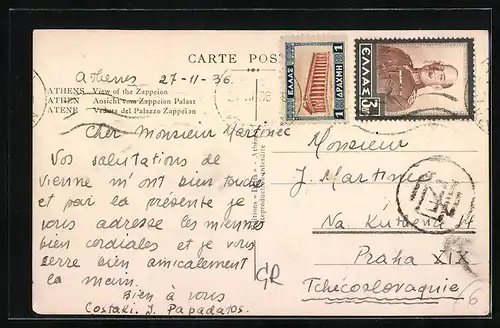 CARTE POSTALE
Athènes 27-11-36.
ATHENS View of the Zappeion
ATHEN Ansicht vom Zappeion Palast
ATENE Veduta del Palazzo Zappeion
Cher Monsieur Martinec
Vos salutations de
Vienne m'ont bien touché
et par la présente je
vous adresse les miennes
bien cordiales et je vous
serre bien amicalement
la main.
Bien à vous
Costaki J. Papadatos.
GR
Reproduction interdite
ΕΛΛΑΣ
1 ΔΡΑΧΜΗ 1
ΕΛΛΑΣ
3
Monsieur
J. Martinec
Na Kuthenu 14
Praha XIX
Tchécoslovaquie